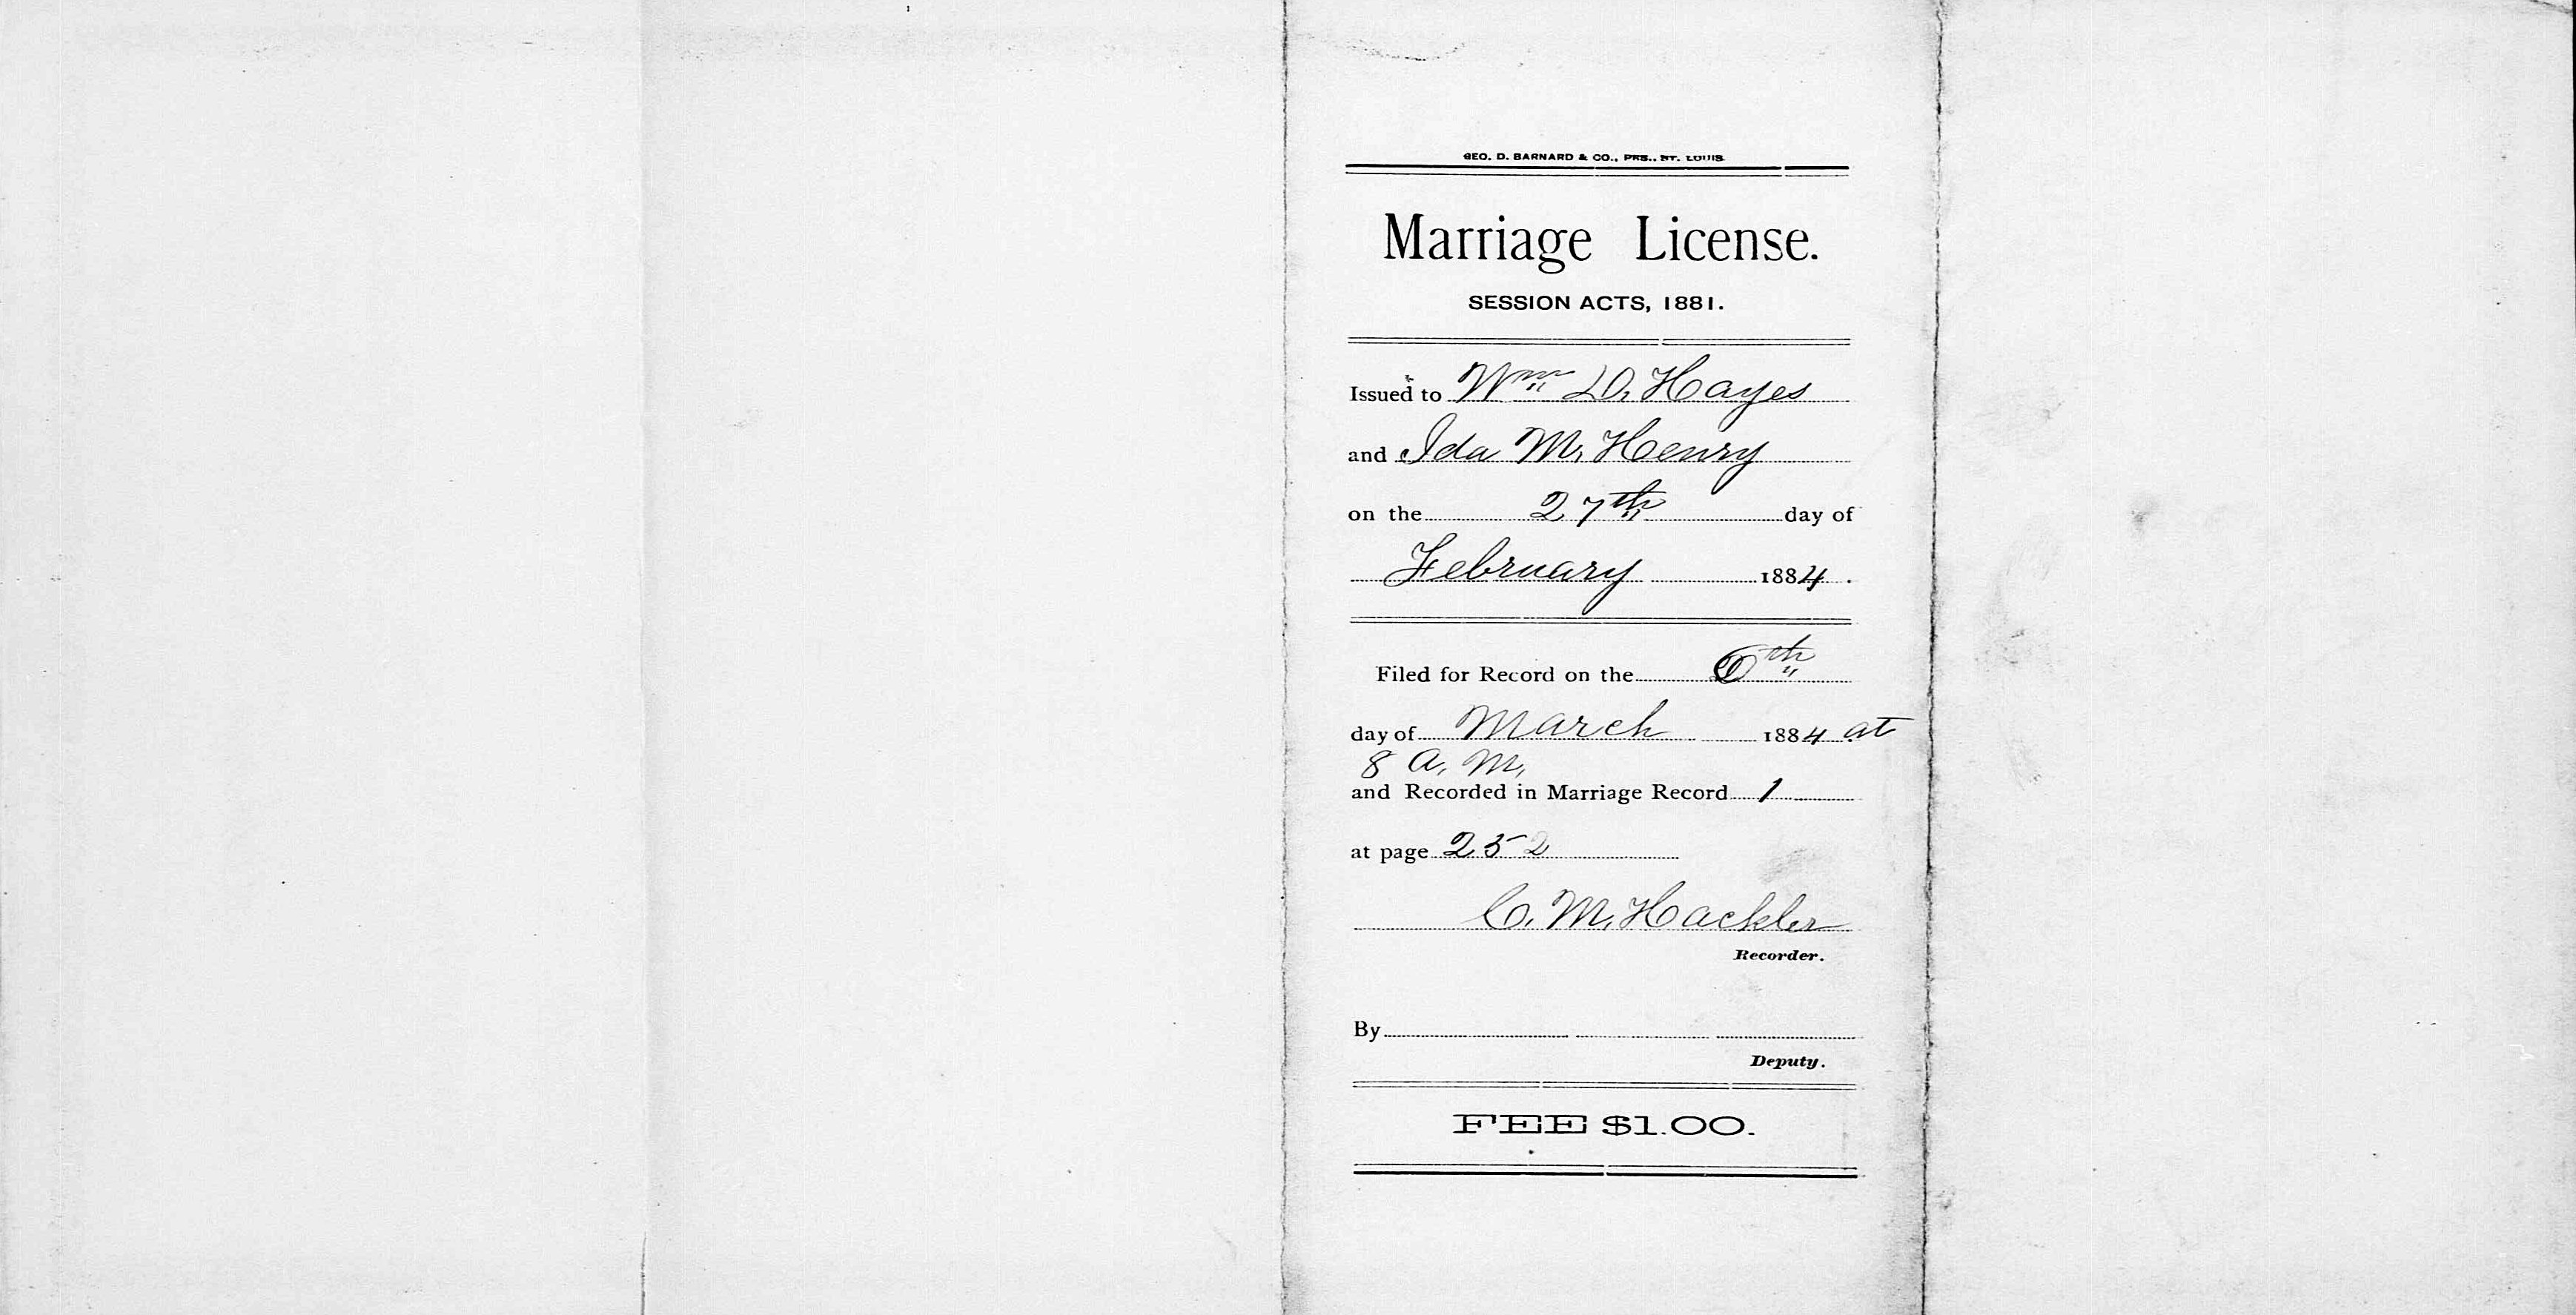 GEO. D. BARNARD & CO., PRS., ST. LOUIS.
Marriage License.
SESSION ACTS, 1881.
Issued to Wm D. Hayes
and Ida M. Henry
on the 27th day of
February 1884.
Filed for Record on the 6th
day of March 1884 at
8 A. M.
and Recorded in Marriage Record 1
at page 252
C. M. Hackler
Recorder.
By
Deputy.
FEE $1.00.